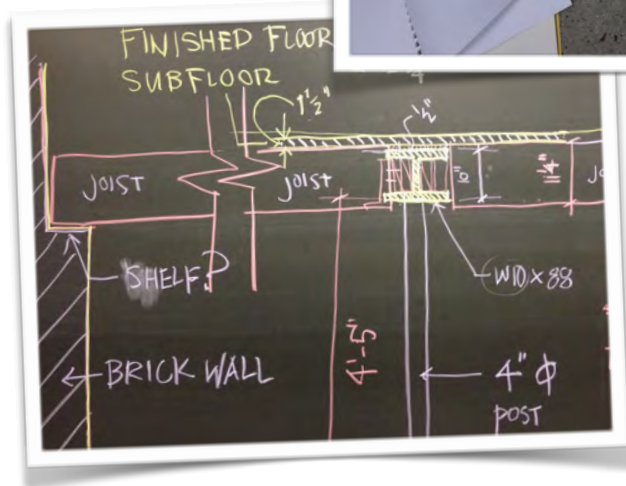 FINISHED FLOOR
SUBFLOOR
1 1/2"
1/2"
JOIST
JOIST
SHELF?
W10 x 88
BRICK WALL
4'-5"
4" Φ
POST